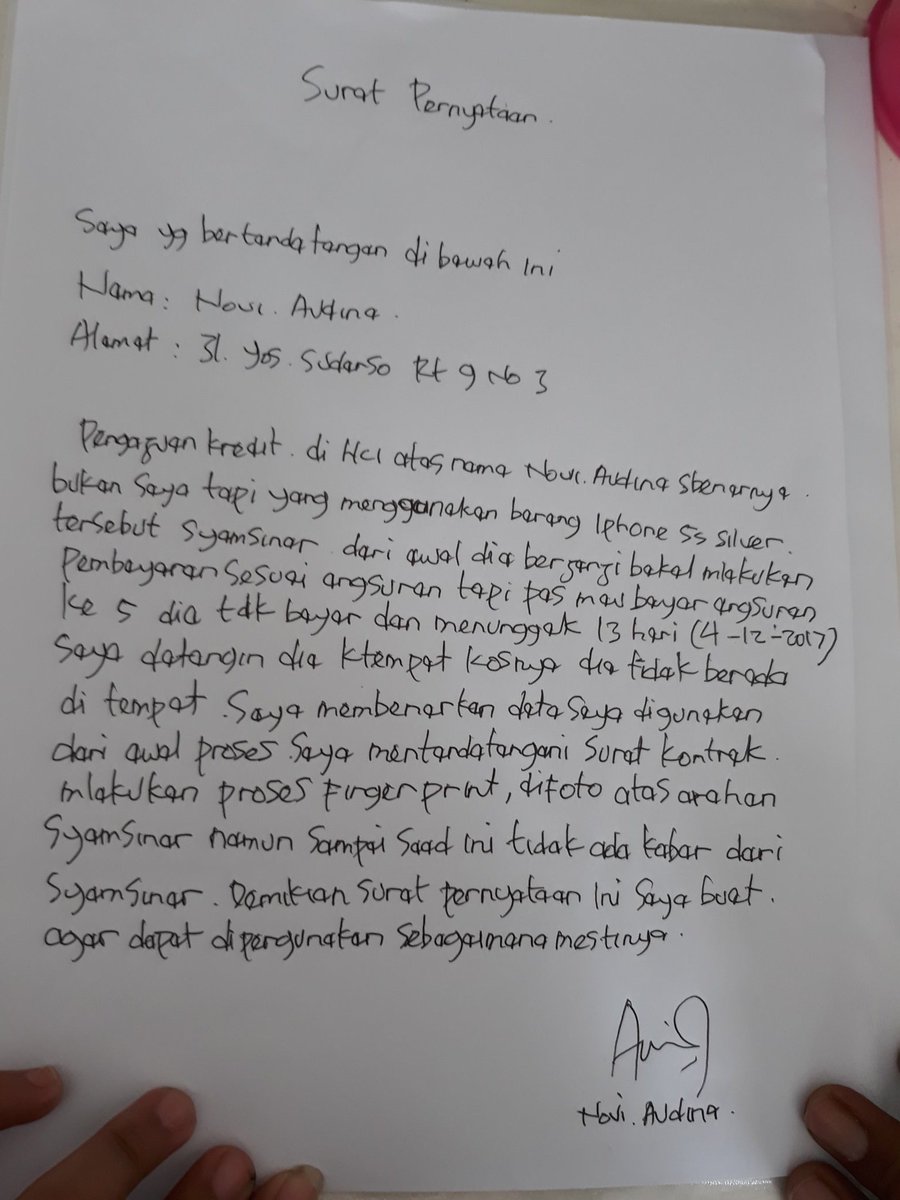 Surat Pernyataan.
Saya yg bertandatangan di bawah ini
Nama : Novi. Audina.
Alamat : Jl. Yos. Sudarso Rt 9 No 3
Pengajuan kredit. di HCI atas nama Novi. Audina sbenarnya.
bukan saya tapi yang menggunakan barang Iphone 5s silver.
tersebut Syamsinar. dari awal dia berjanji bakal mlakukan
Pembayaran sesuai angsuran tapi pas mau bayar angsuran
ke 5 dia tdk bayar dan menunggak 13 hari (4-12-2017)
Saya datangin dia ktempat kosnya dia tidak berada
di tempat. Saya membenarkan data saya digunakan
dari awal proses. Saya mentandatangani surat kontrak.
mlakukan proses Finger print, difoto atas arahan
Syamsinar namun sampai saad ini tidak ada kabar dari
Syamsinar. Demikian surat pernyataan ini saya buat.
agar dapat dipergunakan sebagaimana mestinya.
Novi. Audina.